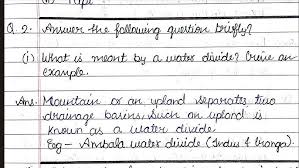 Q.2- Answer the following question briefly?
(i) What is meant by a water divide? Give an
example.
Ans. Mountain or an upland separates two
drainage basins. Such an upland is
known as a water divide.
Eg- Ambala water divide (Indus & Ganga).